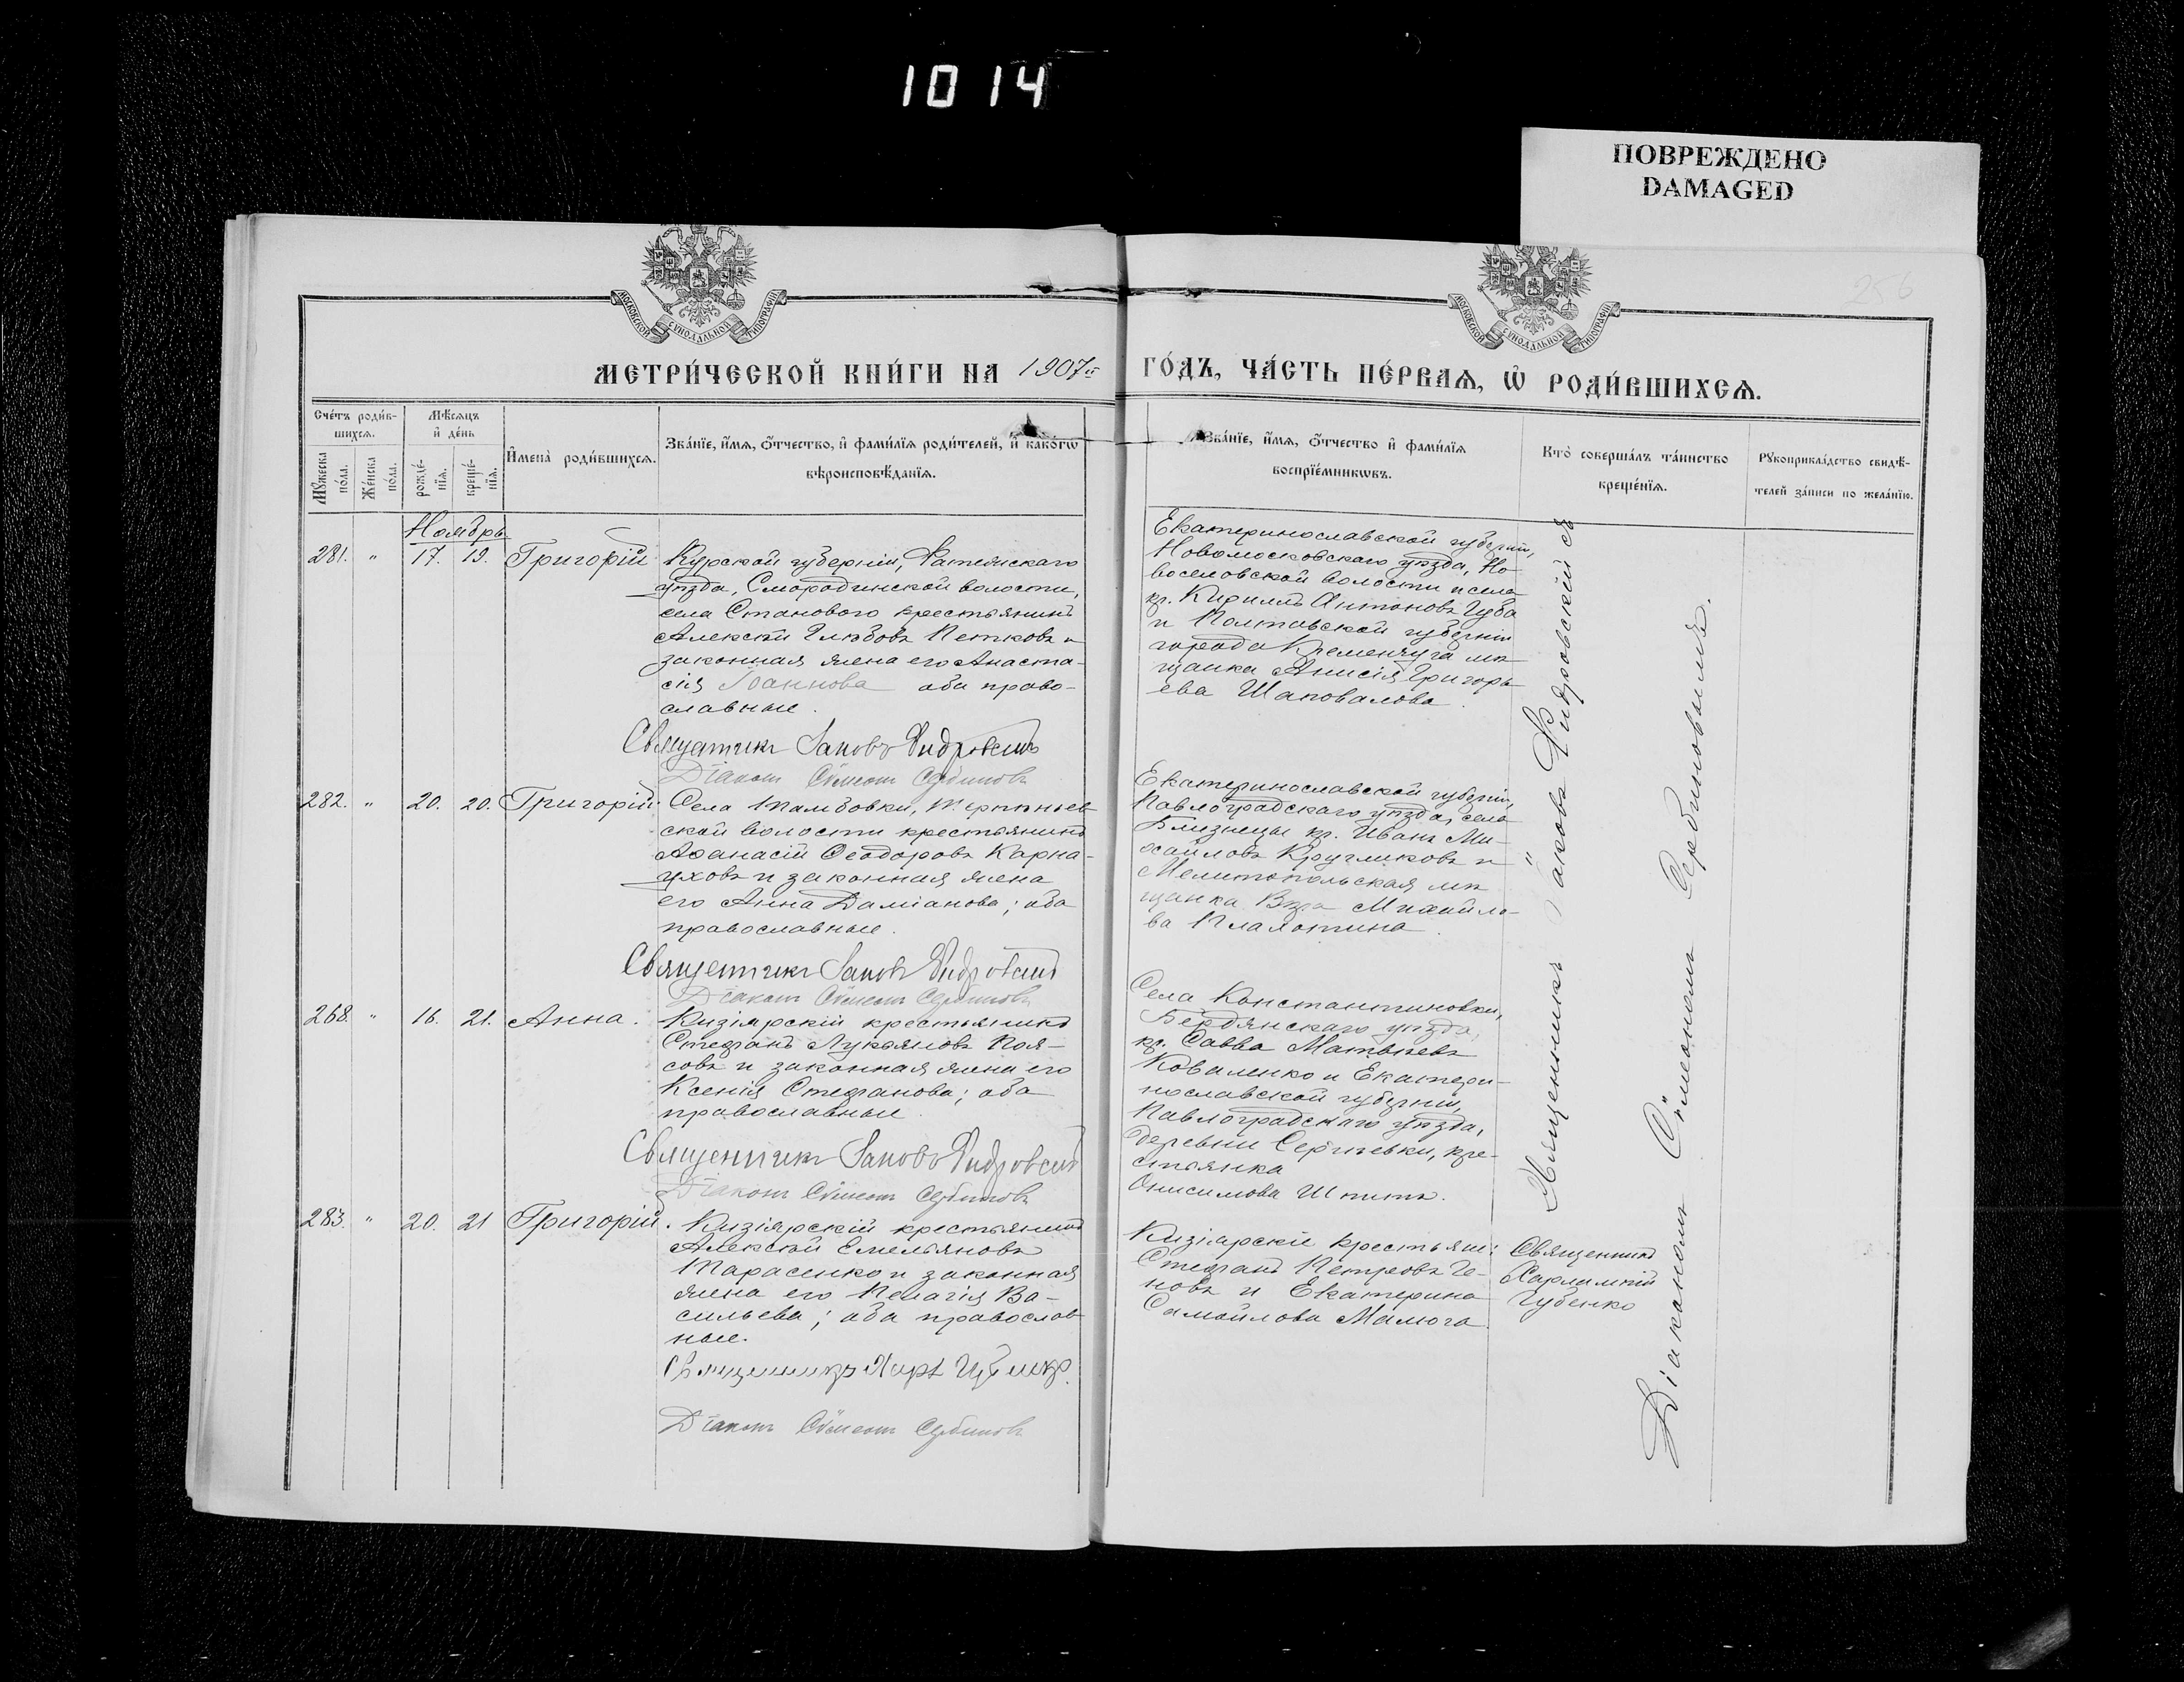 1014
ПОВРЕЖДЕНО
DAMAGED
256
МОСКОВСКОЙ СѴНОДАЛЬНОЙ ТИПОГРАФІИ
МОСКОВСКОЙ СѴНОДАЛЬНОЙ ТИПОГРАФІИ
МЕТРИ́ЧЕСКОЙ КНИ́ГИ НА 1907й ГО́ДЪ, ЧА́СТЬ ПЕ́РВАѦ, Ѡ҆ РОДИ́ВШИХСѦ.
Сче́тъ роди́в-
шихсѧ.
Мѣ́сѧцъ
и҆ де́нь
Мꙋ́жеска
по́ла.
Же́нска
по́ла.
рожде́-
нїѧ.
креще́-
нїѧ.
И҆мена̀ роди́вшихсѧ.
Зва́нїе, и҆́мѧ, ѻ҆́тчество, и҆ фами́лїѧ роди́телей, и҆ како́гѡ
вѣроисповѣ́данїѧ.
Зва́нїе, и҆́мѧ, ѻ҆́тчество и҆ фами́лїѧ
воспрїе́мникѡвъ.
Кто̀ соверша́лъ та́инство
креще́нїѧ.
Рꙋкоприкла́дство свидѣ́-
телей за́писи по жела́нїю.
Ноябрь
281. " 17. 19. Григорій
Курской губерніи, Фатежскаго
уѣзда, Смородинской волости,
села Становаго крестьянинъ
Алексѣй Глѣбовъ Петковъ и
законная жена его Анаста-
сія Іоаннова оба право-
славные.
Священникъ Іаковъ Фидровскій
Діаконъ Сѵмеонъ Сербиновъ
Екатеринославской губерніи,
Новомосковскаго уѣзда, Но-
воселовской волости и села
кр. Кириллъ Антоновъ Губа
и Полтавской губерніи
города Кременчуга мѣ-
щанка Анисія Григорь-
ева Шаповалова.
282. " 20. 20. Григорій
Села Тамбовки, Терпѣньев-
ской волости крестьянинъ
Аѳанасій Ѳеодоровъ Карна-
уховъ и законная жена
его Анна Даміанова; оба
православные.
Священникъ Іаковъ Фидровскій
Діаконъ Сѵмеонъ Сербиновъ
Екатеринославской губерніи,
Павлоградскаго уѣзда, села
Близнецы кр. Иванъ Ми-
хайловъ Кругликовъ и
Мелитопольская мѣ-
щанка Вѣра Михайло-
ва Плахотина.
268. " 16. 21. Анна.
Кизіярскій крестьянинъ
Стефанъ Лукьяновъ Поя-
совъ и законная жена его
Ксенія Стефанова; оба
православные.
Священникъ Іаковъ Фидровскій
Діаконъ Сѵмеонъ Сербиновъ
Села Константиновки,
Бердянскаго уѣзда,
кр. Савва Матвѣевъ
Коваленко и Екатери-
нославской губерніи,
Павлоградскаго уѣзда,
деревни Сергѣевки, кре-
стьянка
Онисимова Шпитъ.
283. " 20. 21 Григорій.
Кизіярскій крестьянинъ
Алексѣй Емельяновъ
Тарасенко и законная
жена его Пелагія Ва-
сильева; оба православ-
ные.
Священникъ Харл Губенко
Діаконъ Сѵмеонъ Сербиновъ
Кизіярскіе крестьяне:
Стефанъ Петровъ Че-
новъ и Екатерина
Самойлова Малюга
Священникъ
Харлампій
Губенко
Священникъ Іаковъ Фидровскій съ
Діакономъ Сѵмеономъ Сербиновымъ.